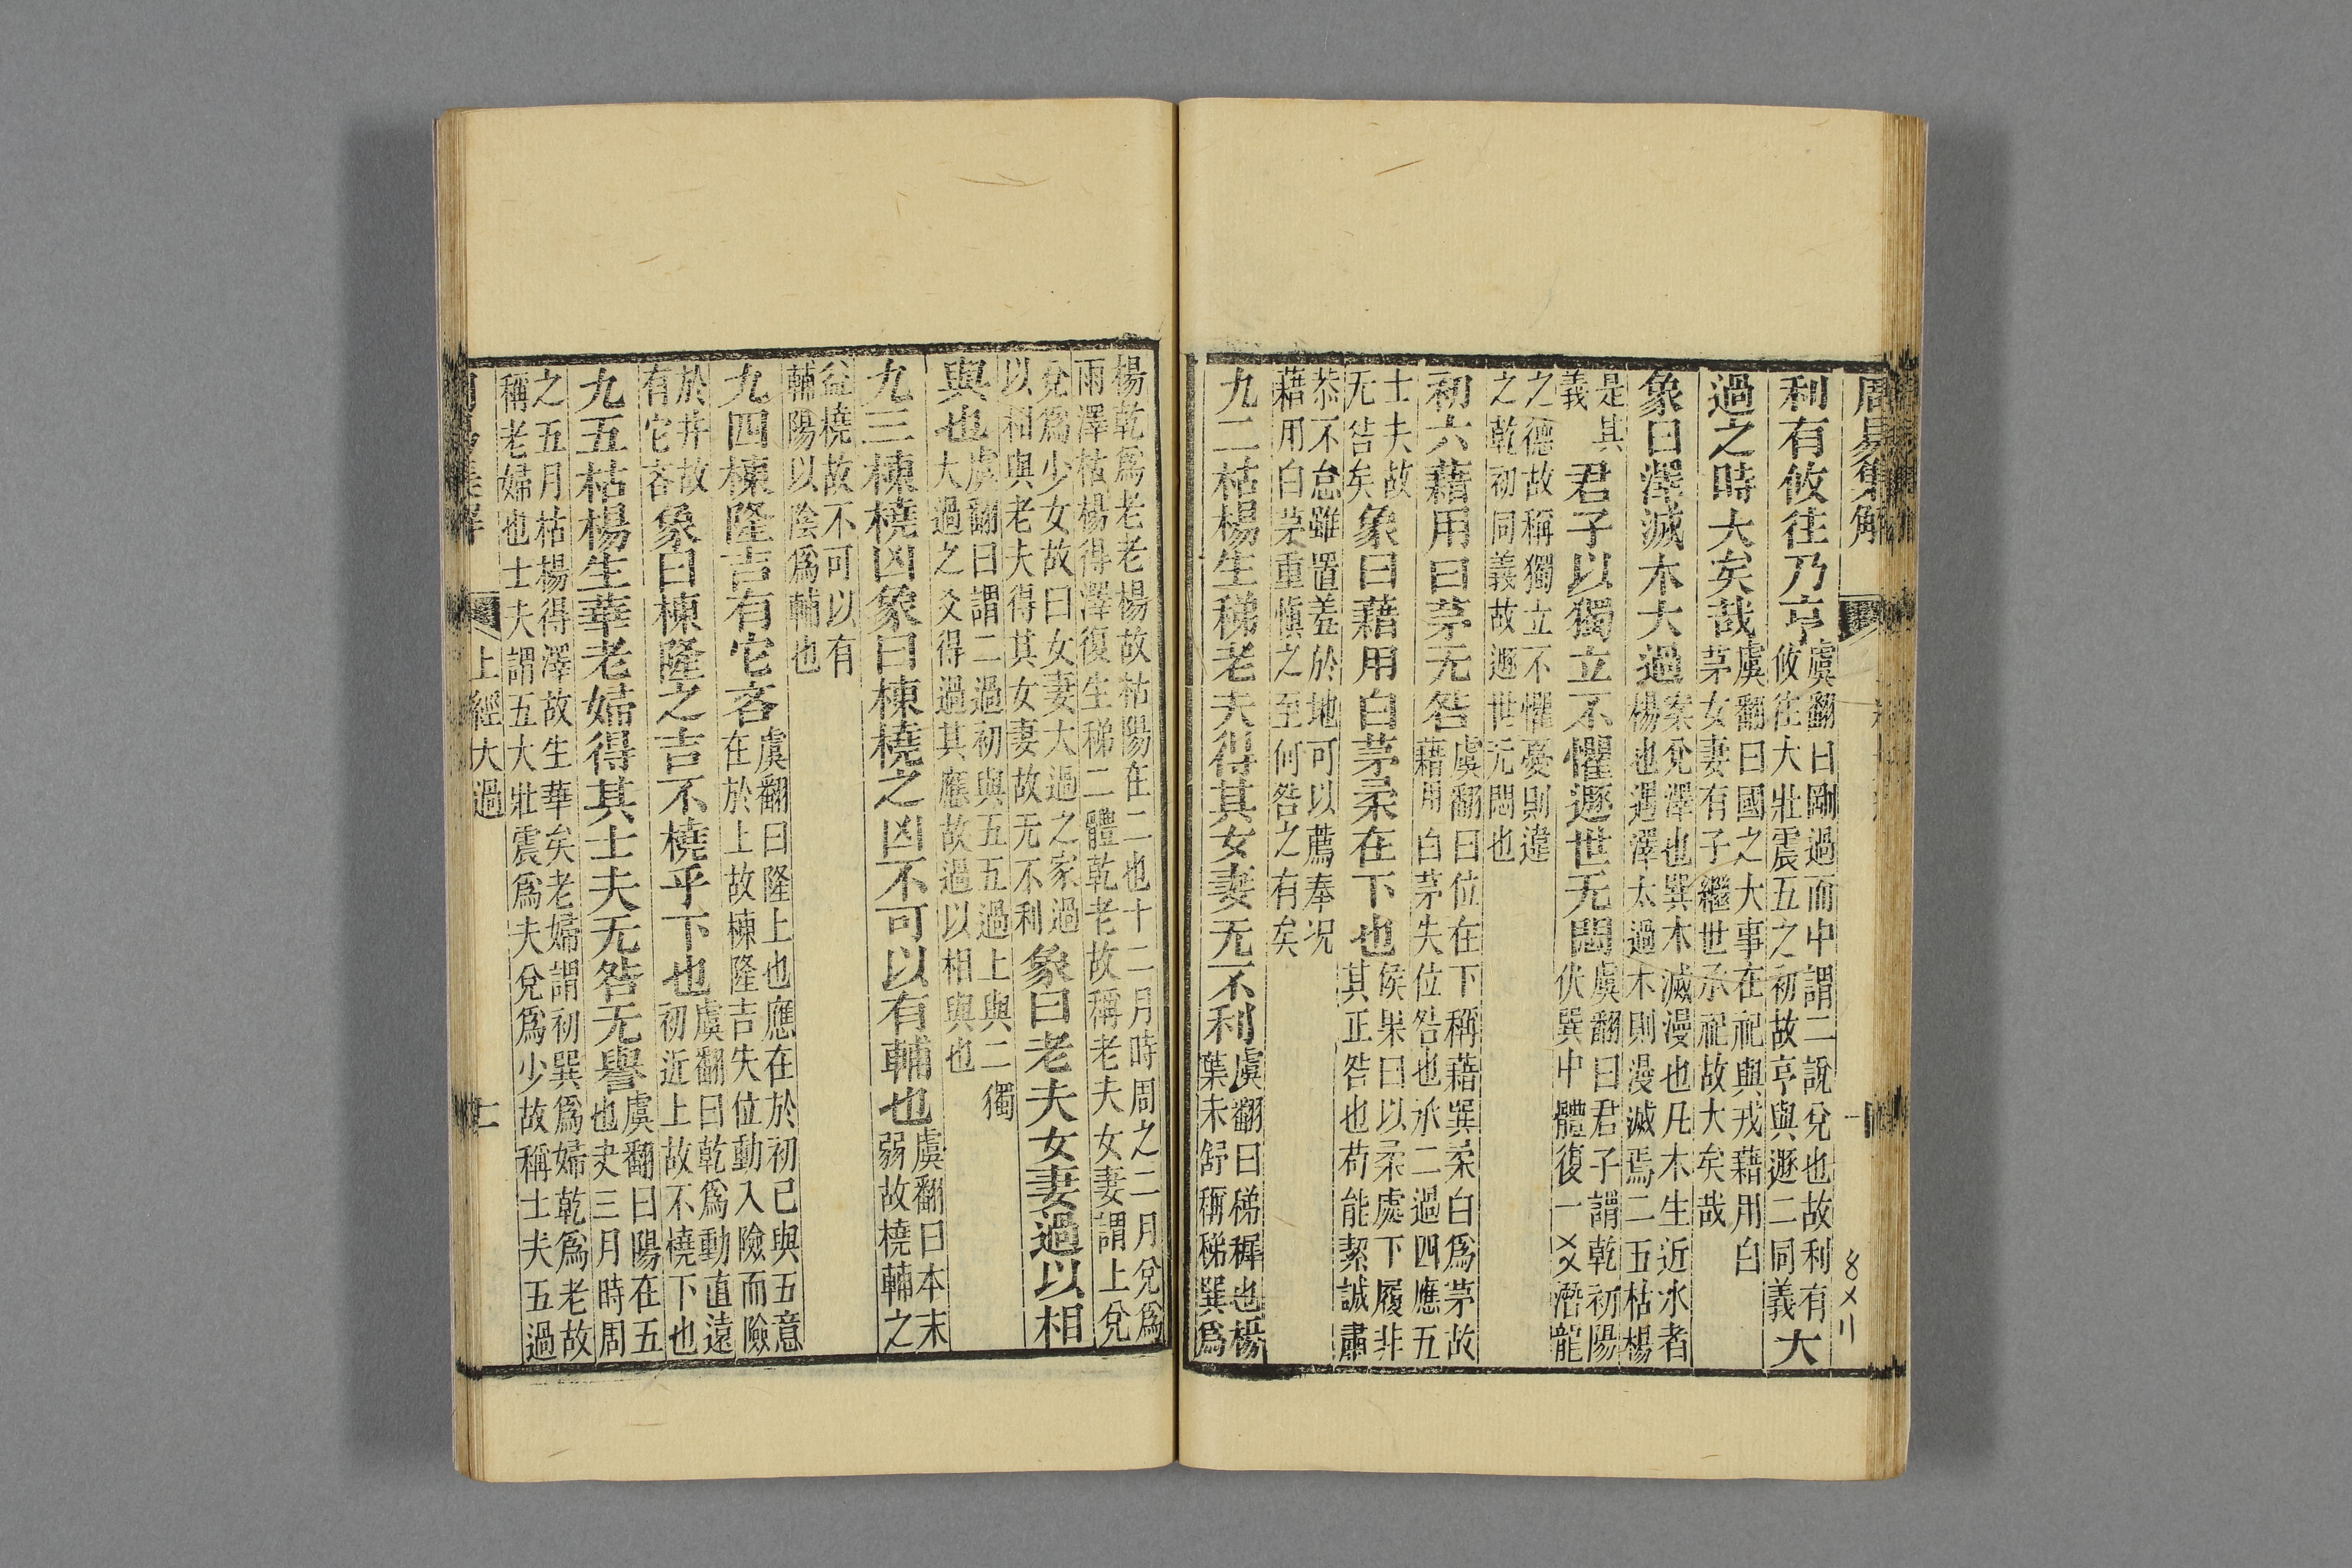 周易集解
利有攸往乃亨虞翻曰剛過而中謂二說兌也故利有攸往大壯震五之初故亨與遯二同義大
過之時大矣哉虞翻曰國之大事在祀與戎藉用白茅女妻有子繼世承祀故大矣哉
象曰澤滅木大過案兌澤也巽木滅漫也凡木生近水者楊也遇澤太過木則漫滅焉二五枯楊
是其義君子以獨立不懼遯世无悶虞翻曰君子謂乾初陽伏巽中體復一爻潛龍
之德故稱獨立不懼憂則違之乾初同義故遯世无悶也
初六藉用白茅无咎虞翻曰位在下稱藉巽柔白爲茅故藉用白茅失位咎也承二過四應五
士夫故无咎矣象曰藉用白茅柔在下也侯果曰以柔處下履非其正咎也苟能絜誠肅
恭不怠雖置羞於地可以薦奉況藉用白茅重愼之至何咎之有矣
九二枯楊生稊老夫得其女妻无不利虞翻曰稊穉也楊葉未舒稱稊巽爲
楊乾爲老老楊故枯陽在二也十二月時周之二月兌爲雨澤枯楊得澤復生稊二體乾老故稱老夫女妻謂上兌
兌爲少女故曰女妻大過之家過以相與老夫得其女妻故无不利象曰老夫女妻過以相
與也虞翻曰謂二過初與五五過上與二獨大過之爻得過其應故過以相與也
九三棟橈凶象曰棟橈之凶不可以有輔也虞翻曰本末弱故橈輔之
益橈故不可以有輔陽以陰爲輔也
九四棟隆吉有它吝虞翻曰隆上也應在於初已與五意在於上故棟隆吉失位動入險而險
於井故有它吝象曰棟隆之吉不橈乎下也虞翻曰乾爲動直遠初近上故不橈下也
九五枯楊生華老婦得其士夫无咎无譽虞翻曰陽在五也夬三月時周
之五月枯楊得澤故生華矣老婦謂初巽爲婦乾爲老故稱老婦也士夫謂五大壯震爲夫兌爲少故稱士夫五過
上經大過